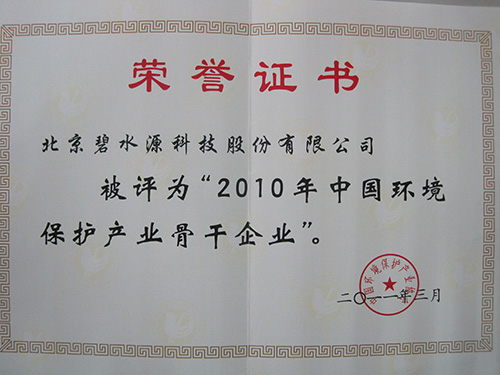 荣誉证书
北京碧水源科技股份有限公司
被评为“2010年中国环境
保护产业骨干企业”。
中国环境保护产业协会
二〇一一年三月